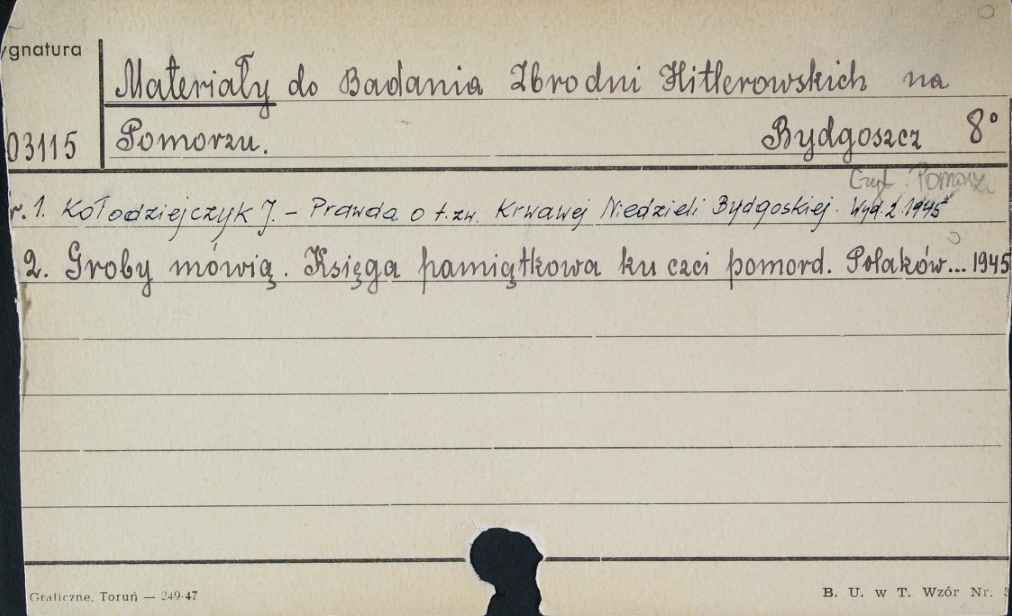 ygnatura
Materiały do Badania Zbrodni Hitlerowskich na
03115 Pomorzu. Bydgoszcz 8°
Czyt. Pomorz.
r. 1. Kołodziejczyk J. - Prawda o t. zw. Krwawej Niedzieli Bydgoskiej. Wyd. 2 1945
2. Groby mówią. Księga pamiątkowa ku czci pomord. Polaków... 1945
Graficzne, Toruń — 249-47
B. U. w T. Wzór Nr.